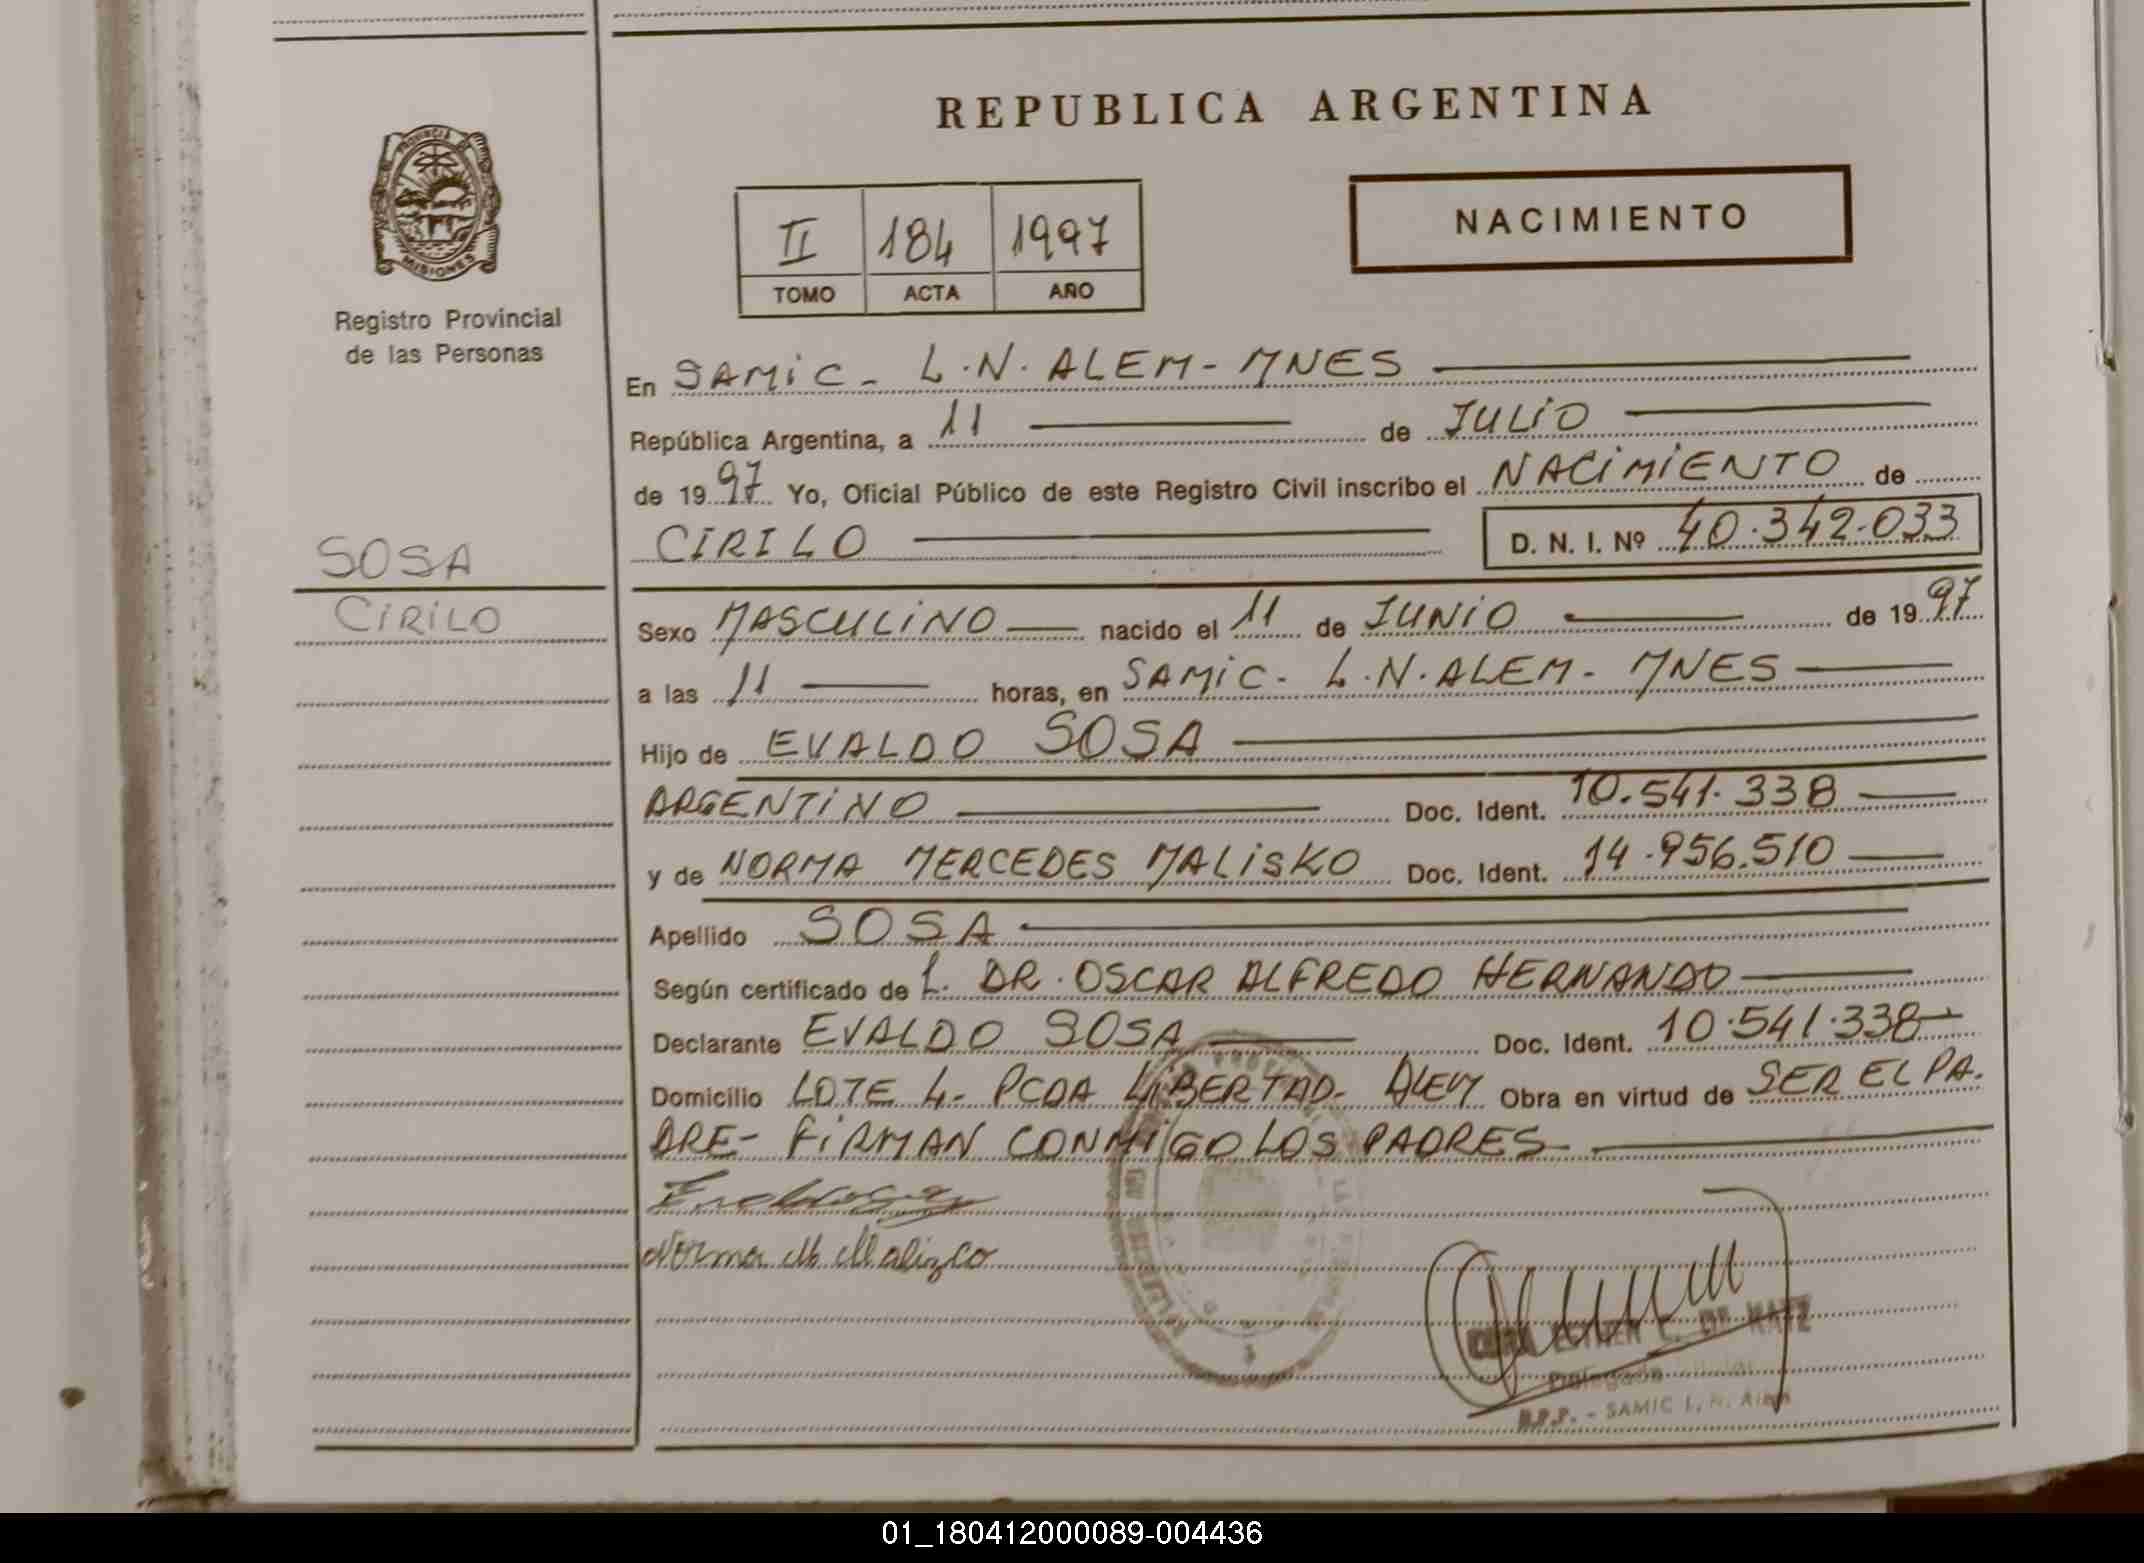 REPUBLICA ARGENTINA
PROVINCIA DE
MISIONES
Registro Provincial
de las Personas
II 184 1997
TOMO ACTA AÑO
NACIMIENTO
En SAMiC - L.N. ALEM - MNES
República Argentina, a 11 de JULIO
de 1997 Yo, Oficial Público de este Registro Civil inscribo el NACIMIENTO de
CIRILO D. N. I. Nº 40.342.033
SOSA
CIRILO
Sexo MASCULINO nacido el 11 de JUNIO de 1997
a las 11 horas, en SAMIC - L.N. ALEM - MNES
Hijo de EVALDO SOSA
ARGENTINO Doc. Ident. 10.541.338
y de NORMA MERCEDES MALISKO Doc. Ident. 14.956.510
Apellido SOSA
Según certificado de L. DR. OSCAR ALFREDO HERNANDO
Declarante EVALDO SOSA Doc. Ident. 10.541.338
Domicilio LOTE 4 - PCDA LIBERTAD - ALEM Obra en virtud de SER EL PA.
DRE - FIRMAN CONMIGO LOS PADRES
Norma M Malizco
DE KATZ
R.P.P. - SAMIC L. N. Alem
01_180412000089-004436